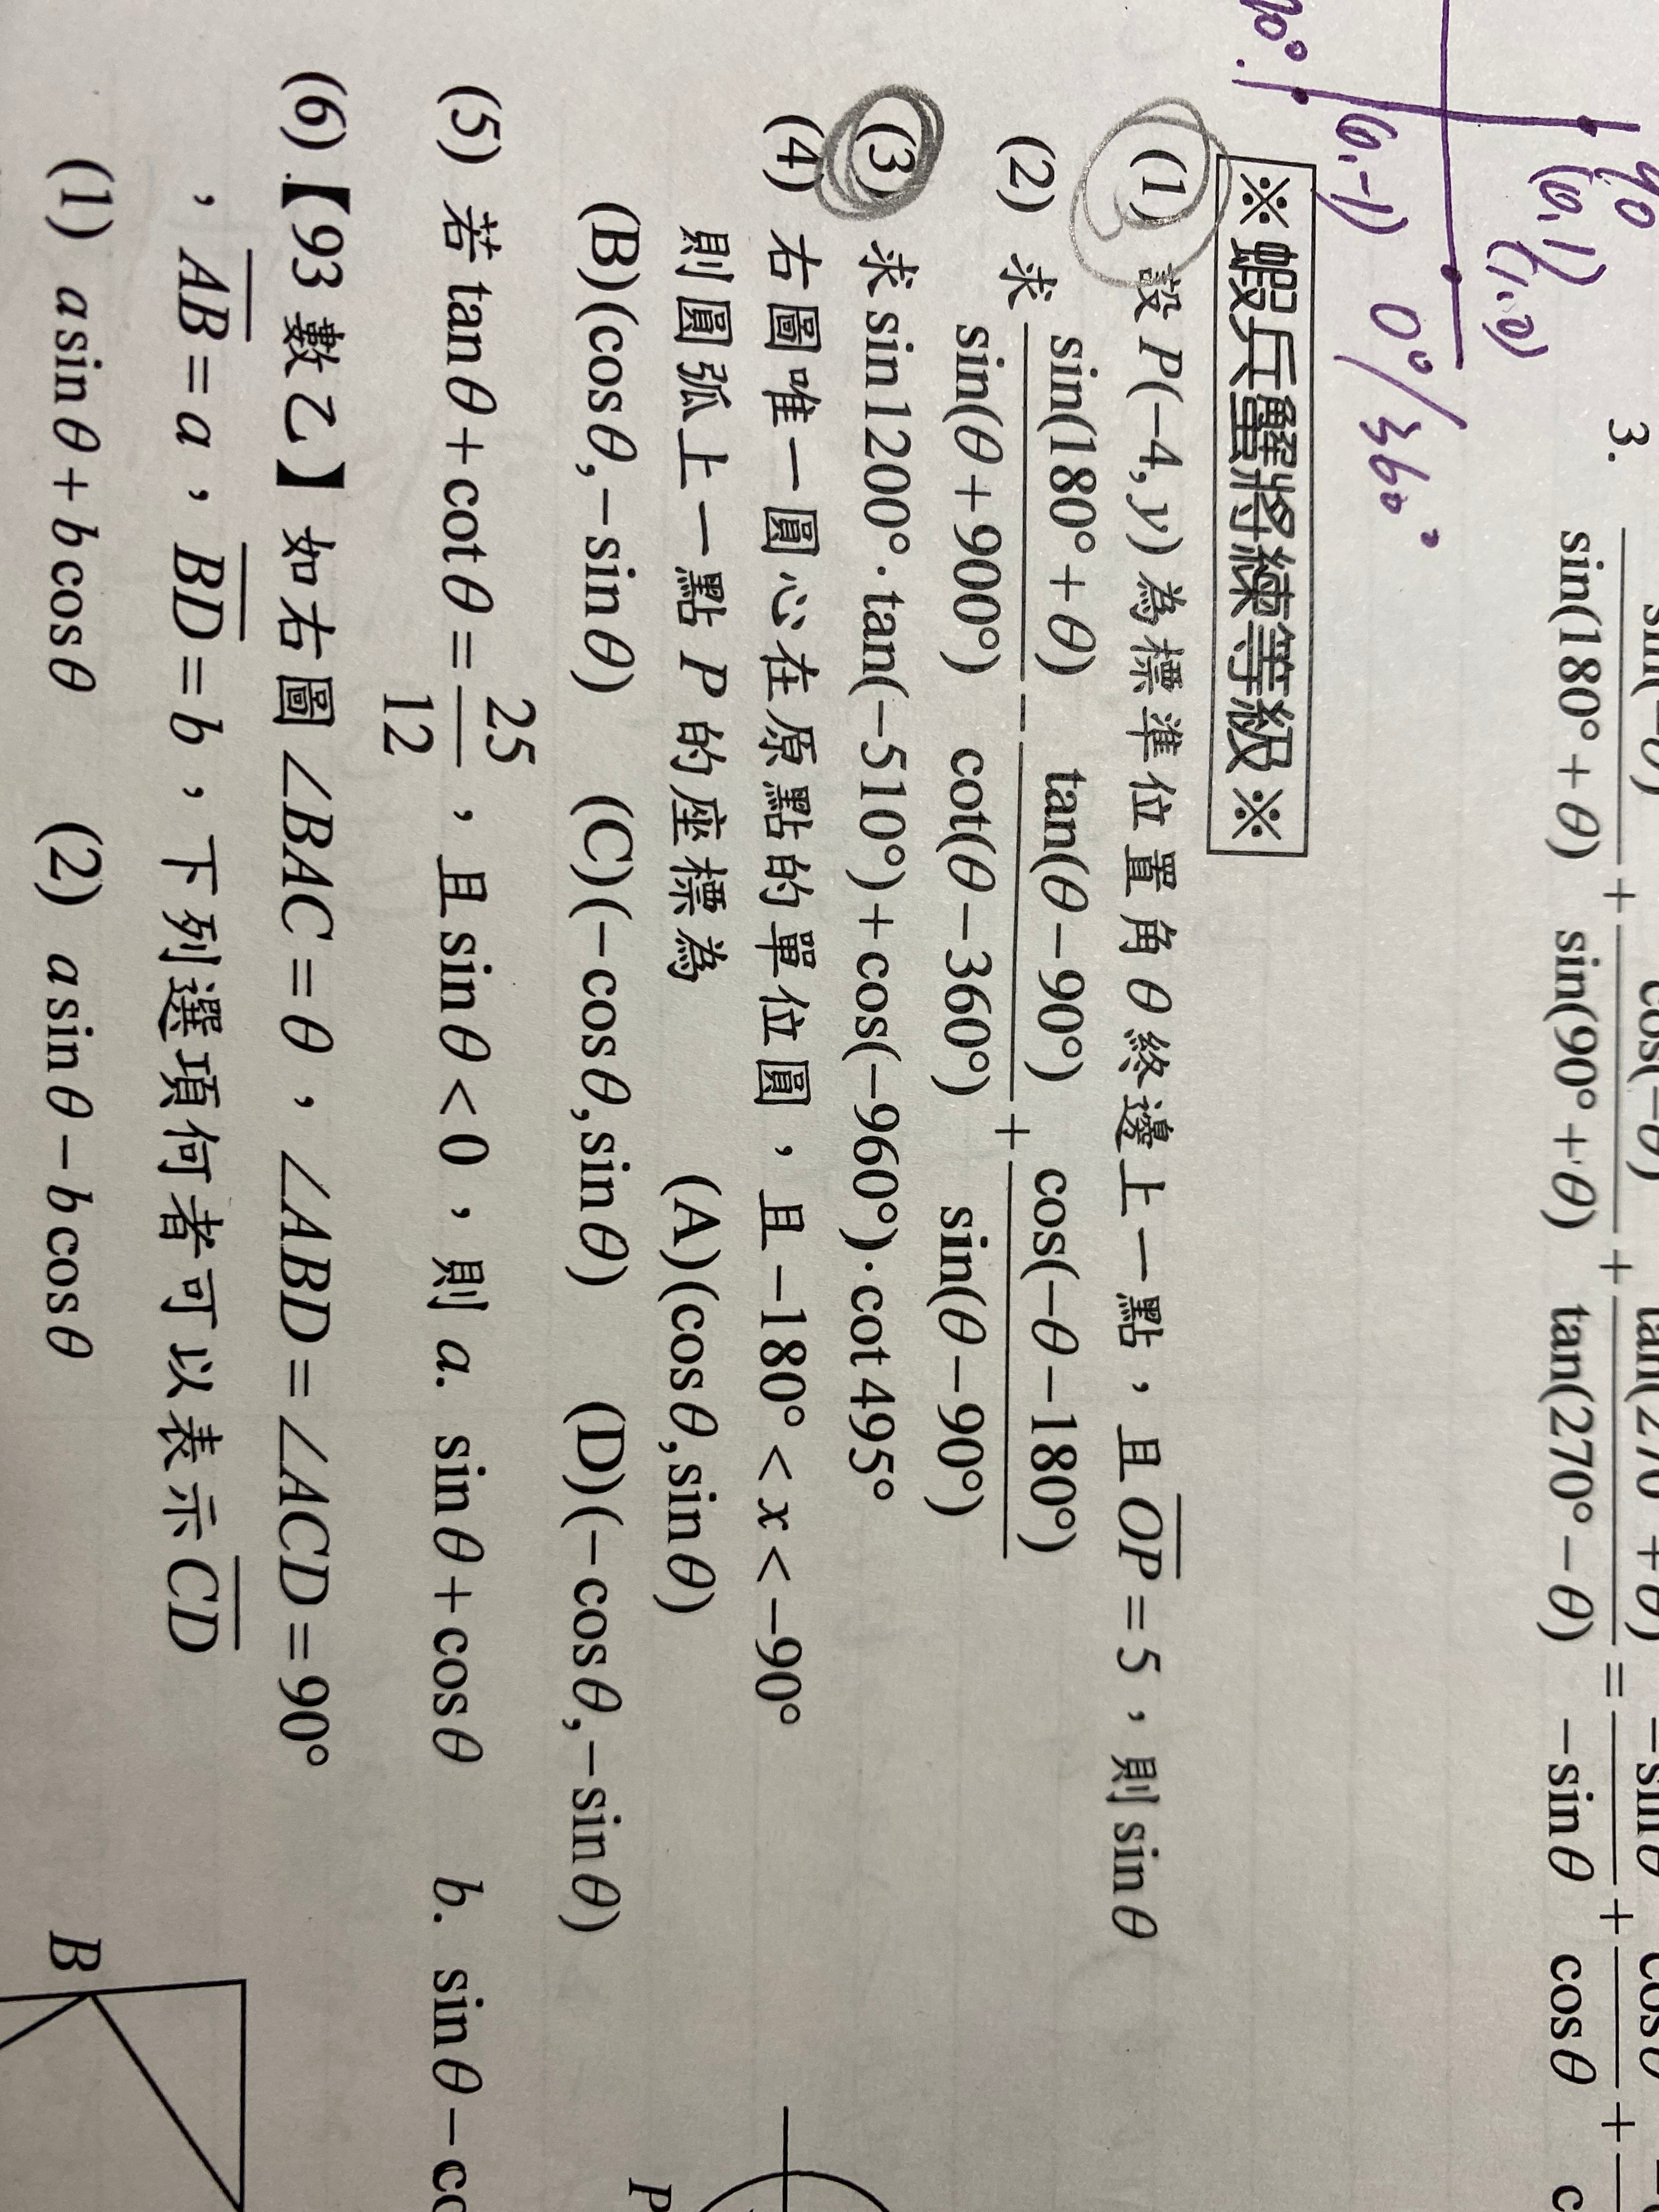 sin(−θ) cos(−θ) tan(270°+θ) −sinθ cosθ
3. + + = + +
sin(180°+θ) sin(90°+θ) tan(270°−θ) −sinθ cosθ
90
(0,1)
(1,0)
0°/360°
(0,-1)
※蝦兵蟹將練等級※
(1) 設 P(−4, y) 為標準位置角 θ 終邊上一點，且 OP = 5，則 sin θ
(2) 求 sin(180°+θ)/sin(θ+900°) − tan(θ−90°)/cot(θ−360°) + cos(−θ−180°)/sin(θ−90°)
(3) 求 sin1200°·tan(−510°)+cos(−960°)·cot495°
(4) 右圖唯一圓心在原點的單位圓，且 −180° < x < −90°
則圓弧上一點 P 的座標為 (A)(cosθ,sinθ)
(B)(cosθ,−sinθ) (C)(−cosθ,sinθ) (D)(−cosθ,−sinθ)
P
(5) 若 tanθ+cotθ = 25/12，且 sinθ < 0，則 a. sinθ+cosθ b. sinθ−co
(6)【93 數乙】如右圖 ∠BAC = θ，∠ABD = ∠ACD = 90°
，AB = a，BD = b，下列選項何者可以表示 CD
(1) a sinθ + b cosθ (2) a sinθ − b cosθ
B